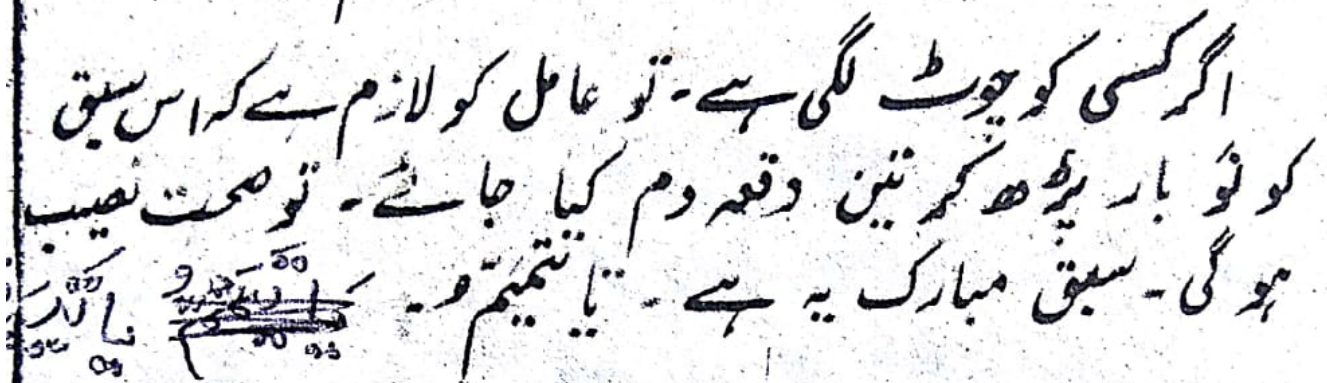 اگر کسی کو چوٹ لگی ہے۔ تو عامل کو لازم ہے کہ اس سبق
کو نَو بار پڑھ کر تین دفعہ دم کیا جائے۔ تو صحت نصیب
ہو گی۔ سبق مبارک یہ ہے۔